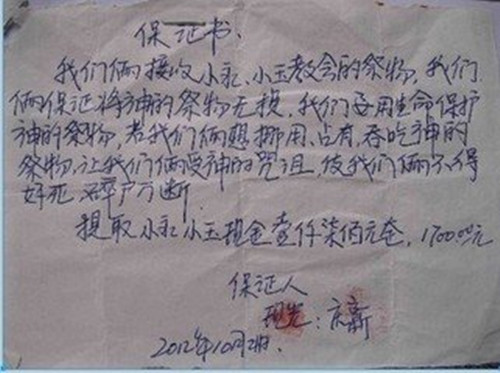 保证书.
我们俩接收小永、小玉教会的祭物,我们
俩保证将神的祭物无损,我们要用生命保护
神的祭物,若我们俩想挪用、占有、吞吃神的
祭物,让我们俩受神的咒诅,使我们俩不得
好死 万断.
提取小永小玉现金壹仟柒佰元套, 1700.00元
保证人
现光: 京新
2012年10月2日.